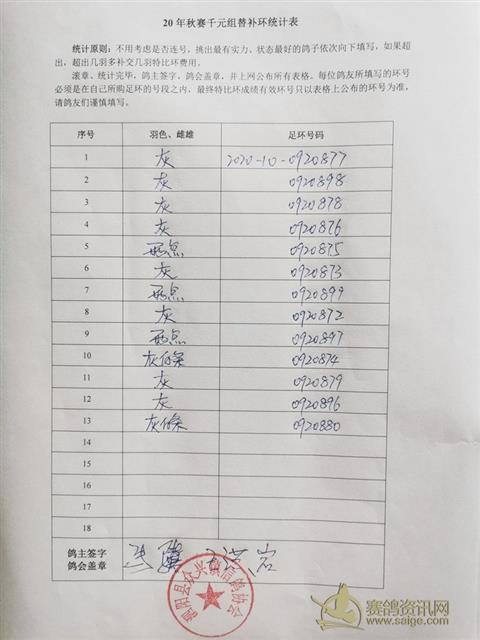 20年秋赛千元组替补环统计表
统计原则：不用考虑是否连号，挑出最有实力、状态最好的鸽子依次向下填写，如果超
出，超出几羽多补交几羽特比环费用。
滚章、统计完毕，鸽主签字，鸽会盖章，并上网公布所有表格。每位鸽友所填写的环号
必须是在自己所购足环的号段之内，最终特比环成绩有效环号只以表格上公布的环号为准，
请鸽友们谨慎填写。
序号 羽色、雌雄 足环号码
1 灰 2020-10-0920877
2 灰 0920898
3 灰 0920878
4 灰 0920876
5 雨点 0920875
6 灰 0920873
7 雨点 0920899
8 灰 0920872
9 雨点 0920897
10 灰 0920874
11 灰 0920879
12 灰 0920896
13 灰 0920880
14
15
16
17
18
鸽主签字
鸽会盖章
阳县众兴镇信鸽协会
赛鸽资讯网
www.saige.com